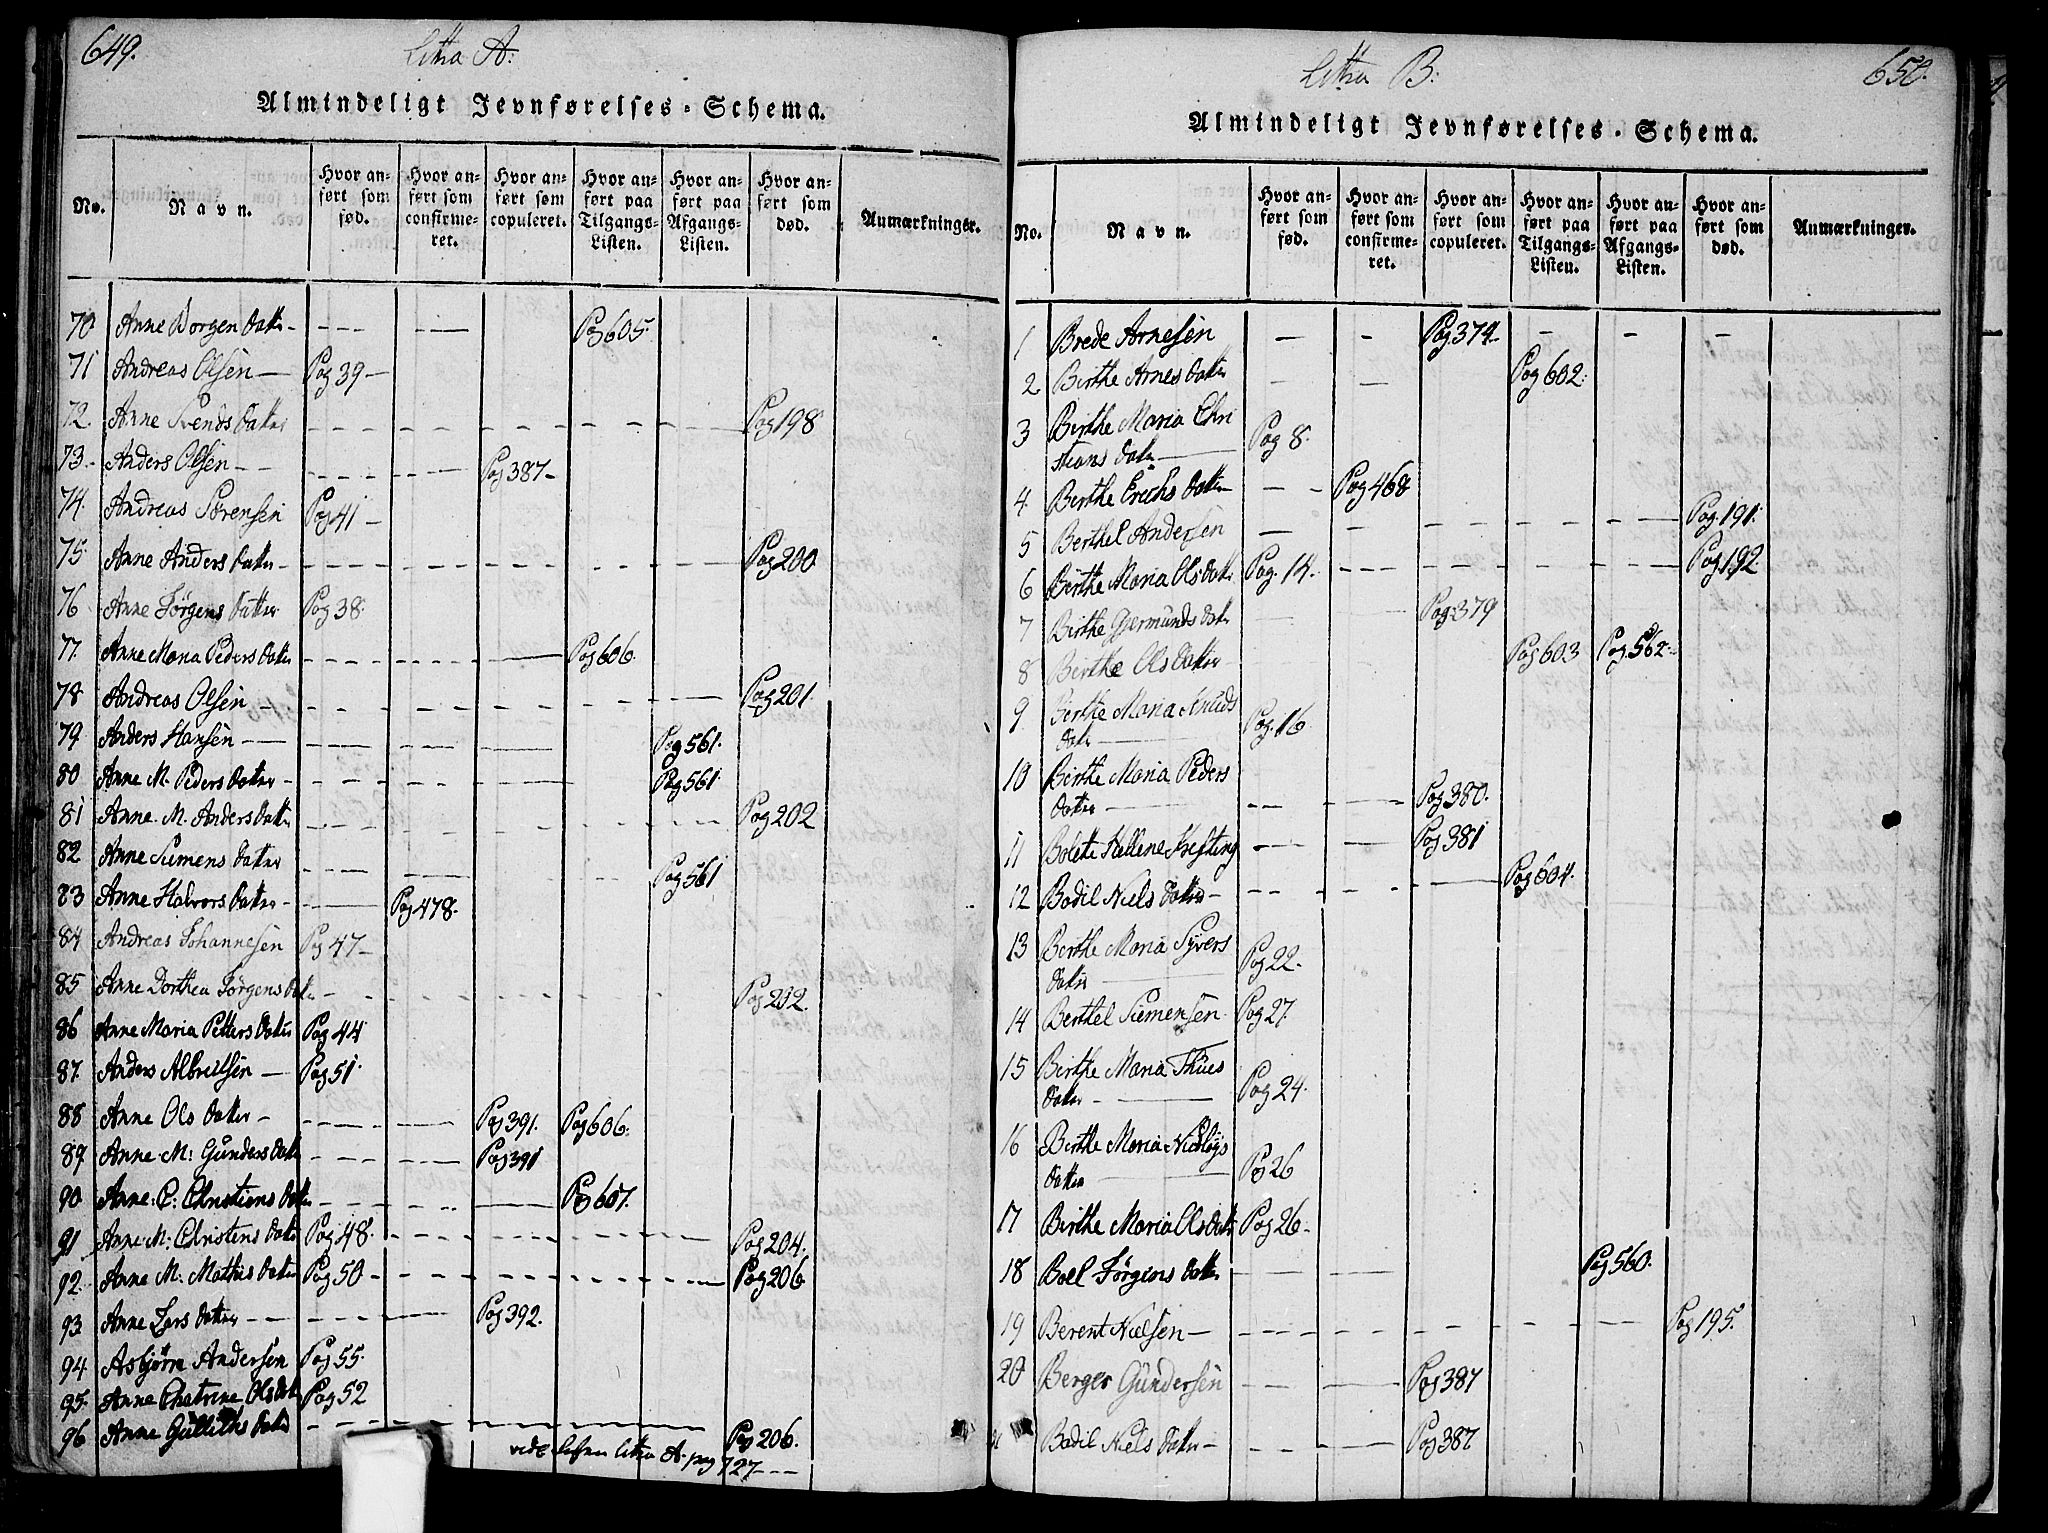 649.
Litra A:
Almindeligt Jevnførelses-Schema.
No. Navn. Hvor anført som fød. Hvor anført som confirmeret. Hvor anført som copuleret. Hvor anført paa Tilgangs-Listen. Hvor anført paa Afgangs-Listen. Hvor anført som død. Anmærkninger.
70 Anne Borgen Datter - Pag 605.
71 Andreas Olsen - Pag 39 -
72. Anne Svends Datter Pag 198
73. Anders Olsen - Pag 387 -
74. Andreas Sørensen Pag 41 -
75. Anne Anders Datter - Pag 200
76 Anne Jørgens Datter Pag 38.
77. Anne Maria Peders Datter Pag 606.
78 Andreas Olsen - Pag 201.
79. Anders Hansen - Pag 561.
80 Anne M. Peders Datter - Pag 561
81 Anne M. Anders Datter Pag 202
82 Anne Siemens Datter Pag 561
83 Anne Halvors Datter - Pag 478.
84 Andreas Johannesen Pag 47 -
85 Anne Dorthea Jørgens Datter - Pag 202.
86 Anne Maria Petters Datter Pag 44
87. Anders Albretsen - Pag 51.
88 Anne Ols Datter - Pag 391. Pag 606.
89 Anne M: Gunders Datter Pag 391
90 Anne C: Christians Datter Pag 607.
91 Anne M: Christens Datter Pag 48. Pag 204.
92. Anne M: Mathis Datter Pag 50 Pag 206
93 Anne Lars Datter - Pag 392.
94 Asbjørn Andersen Pag 55.
95. Anne Chatrine Ols Datter Pag 52
96 Anne Gulliks Datter Pag 206.
vide Litra A. pag 727 - - -
Litra B:
650.
Almindeligt Jevnførelses-Schema.
No. Navn. Hvor anført som fød. Hvor anført som confirmeret. Hvor anført som copuleret. Hvor anført paa Tilgangs-Listen. Hvor anført paa Afgangs-Listen. Hvor anført som død. Anmærkninger.
1 Brede Arnesen Pag 374 -
2 Birthe Arnes Datter Pag 602.
3 Birthe Maria Chri
stians Datter Pag 8.
4. Berthe Erichs Datter Pag 468
5 Berthel Andersen Pag. 191.
6 Birthe Maria Ols Datter Pag. 14. Pag 192.
7 Birthe Gjermunds Datter Pag 379
8 Berthe Ols Datter Pag 603 Pag. 562.
9 Berthe Maria Knuds
Datter Pag. 16
10 Birthe Maria Peders
Datter Pag 380.
11 Bolette Hellene Krefting Pag 381
12 Bodil Niels Datter - Pag 604.
13 Berthe Maria Syvers
Datter Pag 22.
14 Berthel Siemensen Pag 27.
15 Birthe Maria Thues
Datter Pag 24.
16 Birthe Maria
Datter Pag 26
17 Birthe Maria Ols Datter Pag 26 -
18 Boel Jørgens Datter Pag 560.
19 Berent Nielsen - Pag 195.
20 Berger Gundersen Pag 387
21 Bodil Niels Datter - Pag 387